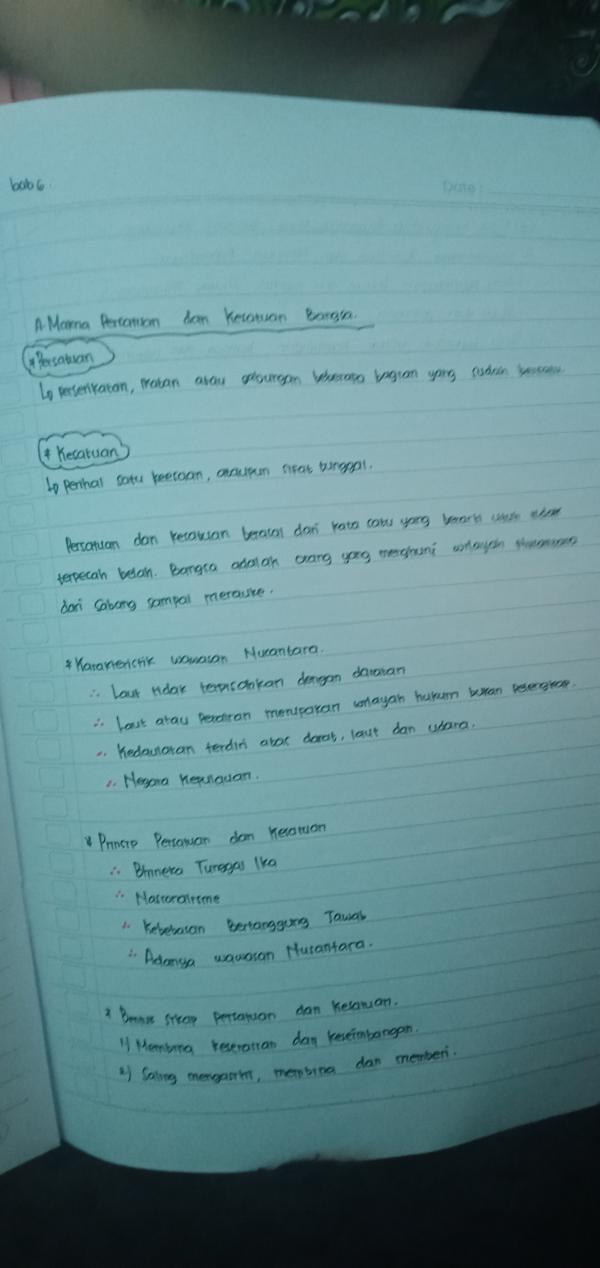 bab 6.
Date:
A. Makna Persatuan dan Kesatuan Bangsa.
* Persatuan
↳ perserikatan, ikatan atau gabungan beberapa bagian yang sudah bersatu.
* Kesatuan
↳ perihal satu keesaan, ataupun sifat tunggal.
Persatuan dan kesatuan berasal dari kata satu yang berarti utuh tidak
terpecah belah. Bangsa adalah orang yang menghuni wilayah
dari Sabang sampai merauke.
* Karakteristik wawasan Nusantara.
∴ Laut tidak terpisahkan dengan daratan
∴ Laut atau perairan merupakan wilayah hukum bukan pelengkap.
∴ Kedaulatan terdiri atas darat, laut dan udara.
∴ Negara Kepulauan.
* Prinsip Persatuan dan Kesatuan
∴ Bhineka Tunggal Ika
∴ Nasionalisme
∴ Kebebasan Bertanggung Jawab
∴ Adanya wawasan Nusantara.
* Bentuk sikap persatuan dan kesatuan.
1) Membina keserasian dan keseimbangan.
2) Saling mengasihi, membina dan memberi.